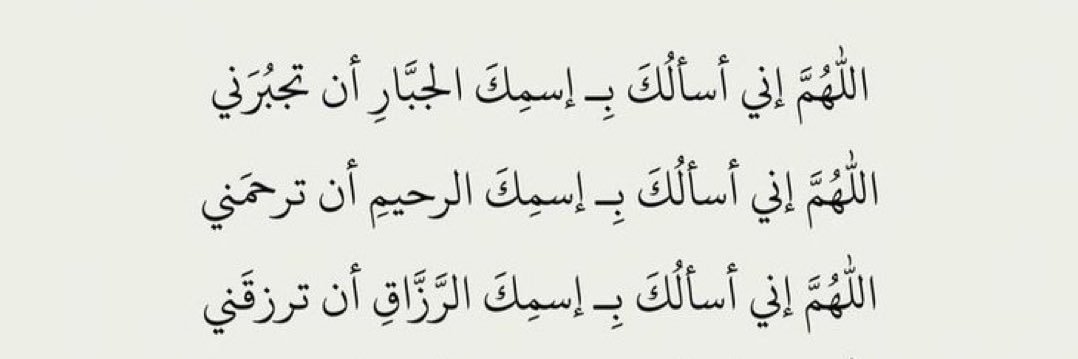 اللّٰهُمَّ إني أسألُكَ بِـ إسمِكَ الجبَّارِ أن تجبُرَني
اللّٰهُمَّ إني أسألُكَ بِـ إسمِكَ الرحيمِ أن ترحمَني
اللّٰهُمَّ إني أسألُكَ بِـ إسمِكَ الرَّزَّاقِ أن ترزقَني